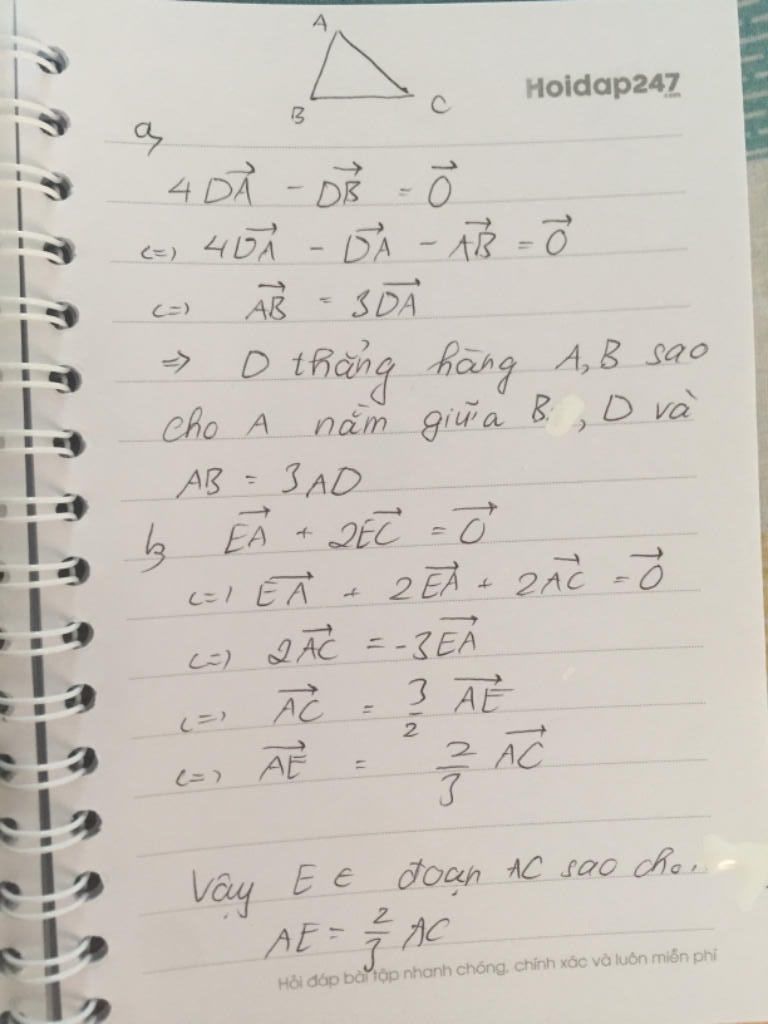 A
B
C
Hoidap247
.com
a,
4\overrightarrow{DA} - \overrightarrow{DB} = \overrightarrow{O}
<=> 4\overrightarrow{DA} - \overrightarrow{DA} - \overrightarrow{AB} = \overrightarrow{O}
<=> \overrightarrow{AB} = 3\overrightarrow{DA}
=> D thẳng hàng A, B sao
cho A nằm giữa B , D và
AB = 3AD
b, \overrightarrow{EA} + 2\overrightarrow{EC} = \overrightarrow{O}
<=> \overrightarrow{EA} + 2\overrightarrow{EA} + 2\overrightarrow{AC} = \overrightarrow{O}
<=> 2\overrightarrow{AC} = -3\overrightarrow{EA}
<=> \overrightarrow{AC} = \frac{3}{2} \overrightarrow{AE}
<=> \overrightarrow{AE} = \frac{2}{3} \overrightarrow{AC}
Vậy E ∈ đoạn AC sao cho
AE = \frac{2}{3} AC
Hỏi đáp bài tập nhanh chóng, chính xác và luôn miễn phí